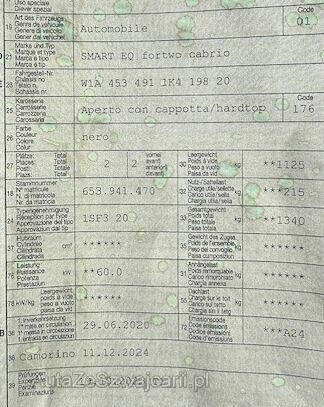 Uso speciale
Diever spezial
19 Art des Fahrzeugs
Genre de véhicule
Genere di veicolo
Gener dal vehichel
Automobile
Code
01
21 Marke und Typ
Marque et type
Marca e tipo
Marca e tip
SMART EQ fortwo cabrio
23 Fahrgestell-Nr.
Châssis no
Telaio n.
Schassis nr.
W1A 453 491 1K4 198 20
25 Karosserie
Carrosserie
Carrozzeria
Carossaria
Aperto con cappotta/hardtop
Code
176
26 Farbe
Couleur
Colore
Colur
nero
27 Plätze: Total
Places: Total
Posti: Totale
Plazs: Total
2 2
vorne
avant
anteriori
davant
30 Leergewicht
Poids à vide
Peso a vuoto
Paisa da vid
kg
**1125
18 Stammnummer
N° matricule
N. matricola
Nr. da matricla
653.941.470
32 Nutz-/Sattellast
Charge utile/sellette
Carico utile/sella
Chargia util
kg
***215
24 Typengenehmigung
Réception par type
Approvazione del tipo
Approvaziun dal tip
1SF3 20
33 Gesamtgewicht
Poids total
Peso totale
Paisa totala
kg
**1340
37 Hubraum
Cylindrée
Cilindrata
Cilindrada
cm³
******
Gewicht des Zuges
Poids de l'ensemble
Peso del convoglio
Paisa cumposiziun
kg
******
76 Leistung
Puissance
Potenza
Prestaziun
kW
**60.0
31 Anhängelast
Poids remorquable
Carico rimorchiabile
kg
******
78 kW/kg
Leergewicht
poids à vide
peso a vuoto
paisa da vid
******
Dachlast
Charge sur le toit
Carico sul tetto
Chargia sin il tetg
kg
******
36 1. Inverkehrsetzung
1ère mise en circulation
1a messa in circolazione
1. entrada en circulaziun
29.06.2020
72 Emissionscode
Code émissions
Codice emissioni
Code d'emissiuns
***A24
38 Camorino 11.12.2024
39 Prüfungen
Expertises
Perizie
Examinaziuns
AutaZeSzwajcarii.pl